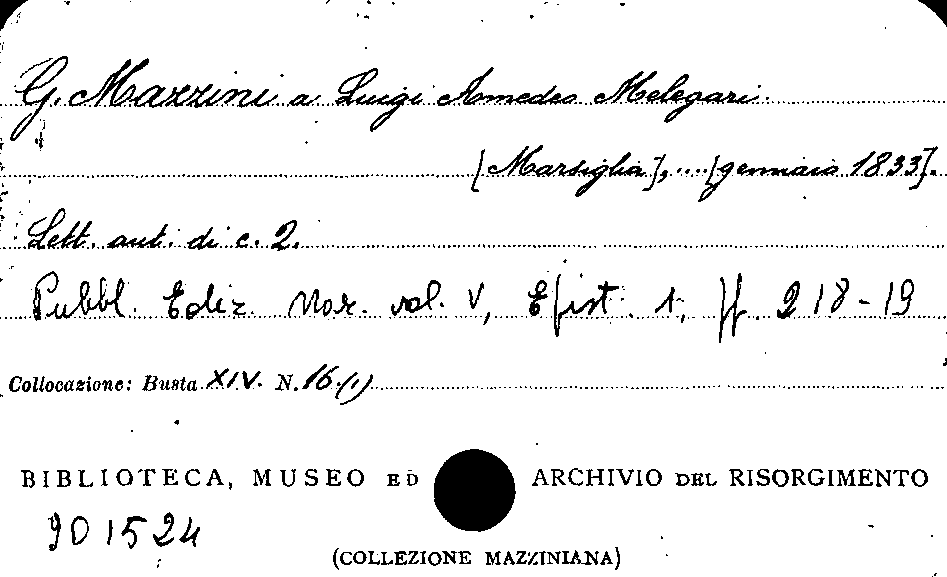 G. Mazzini a Luigi Amedeo Melegari.
[Marsiglia], .... [gennaio 1833].
Lett. aut. di c. 2.
Pubbl. Ediz. Naz. vol. V, Epist. 1, pp. 218-19
Collocazione: Busta XIV. N. 16.(1)
BIBLIOTECA, MUSEO ED ARCHIVIO DEL RISORGIMENTO
901524
(COLLEZIONE MAZZINIANA)